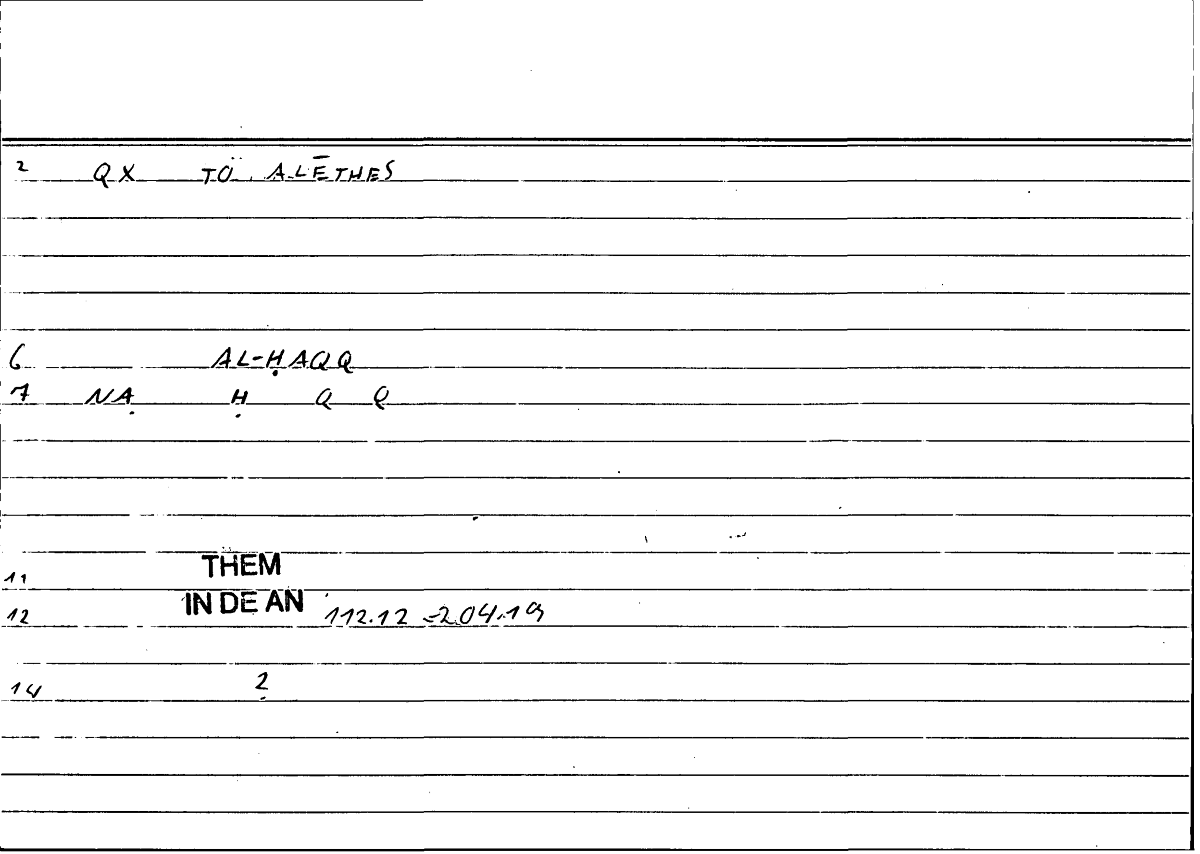 2 QX TÒ ALĒTHES
6 AL-ḤAQQ
7 NA Ḥ Q Q
11 THEM
12 IN DE AN 112.12 - 204.19
14 2